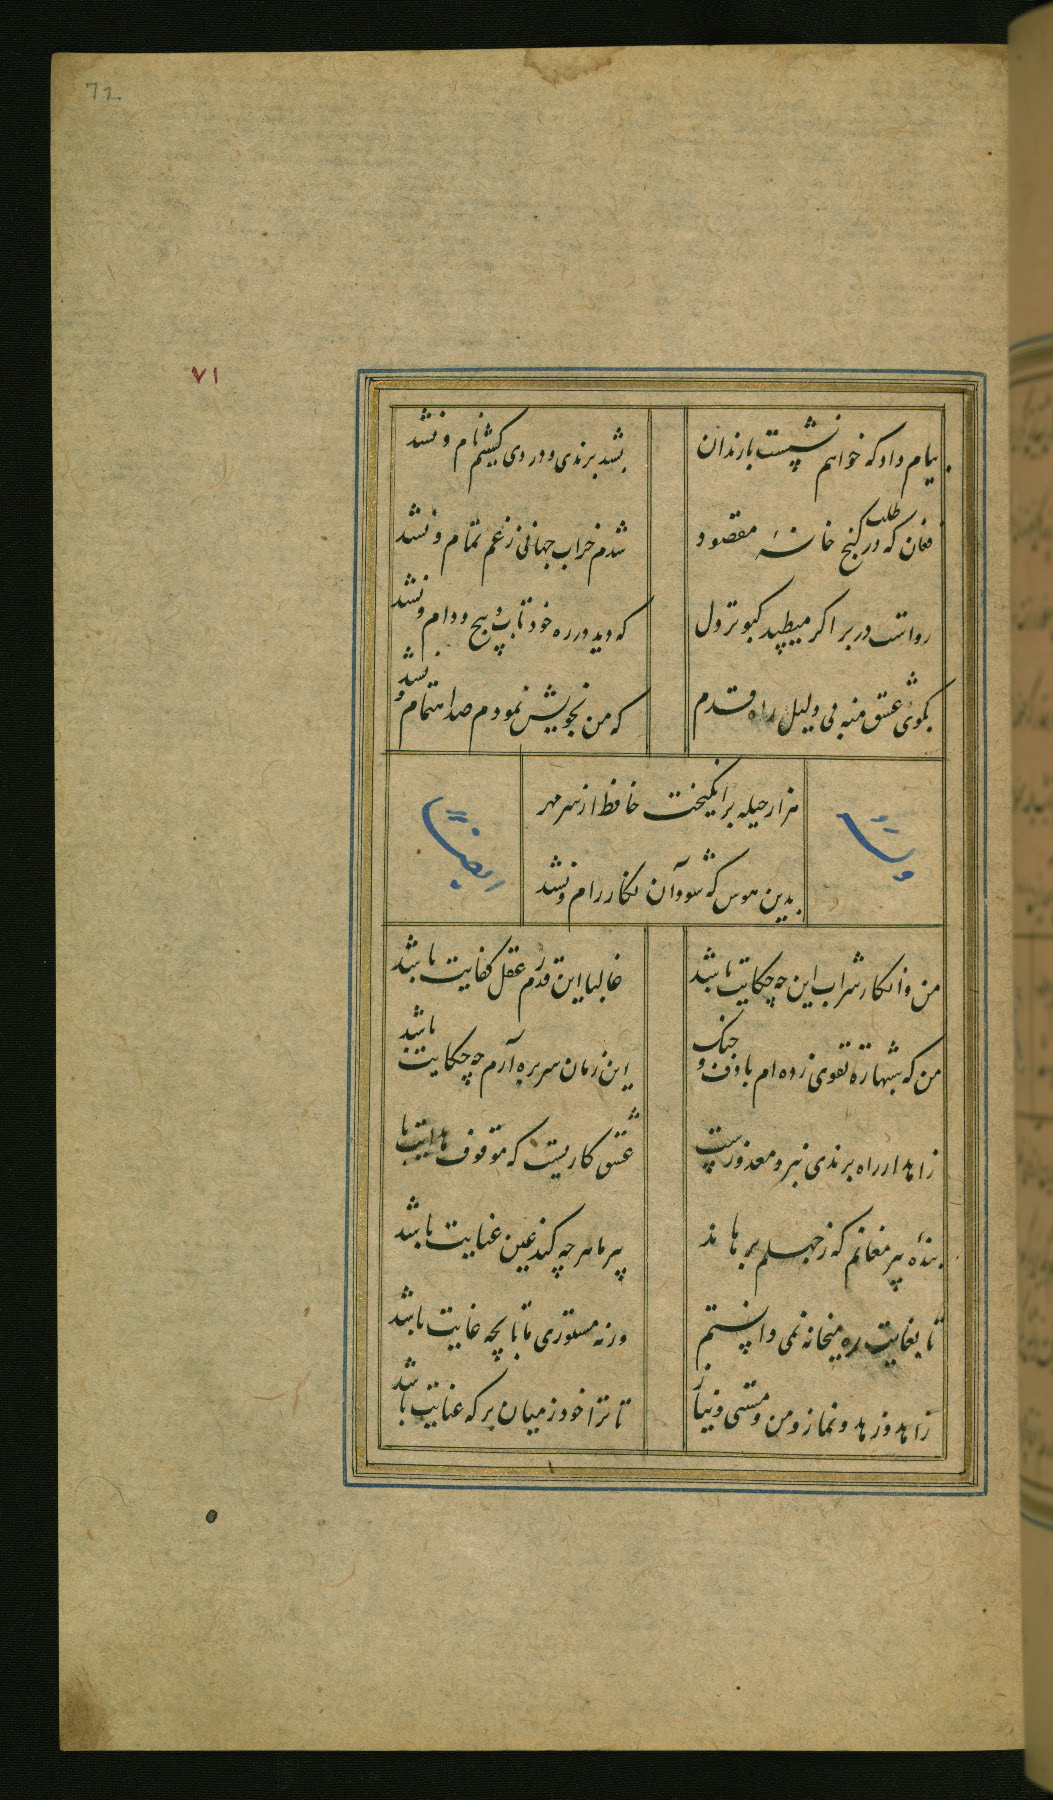 72
۷۱
پیام داد که خواهم نشست با رندان
بشد برندی و دردی کشیم نام و نشد
فغان که در طلب کنج خانهٔ مقصود
شدم خراب جهانی ز غم تمام و نشد
رواست در بر اگر میطپد کبوتر دل
که دید در ره خود تاب و پیچ و دام و نشد
بکوی عشق منه بی دلیل راه قدم
که من بخویش نمودم صد اهتمام و نشد
هزار حیله برانگیخت حافظ از سر مهر
بدین هوس که شود آن نگار رام و نشد
وله
ایضا
من و انکار شراب این چه حکایت باشد
غالبا این قدرم عقل کفایت باشد
من که شبها ره تقوی زده ام با دف و چنگ
این زمان سر بره آرم چه حکایت باشد
زاهد ار راه برندی نبرد معذورست
عشق کاریست که موقوف هدایت باشد
بندهٔ پیر مغانم که ز جهلم برهاند
پیر ما هر چه کند عین عنایت باشد
تا بغایت ره میخانه نمی دانستم
ورنه مستوری ما تا بچه غایت باشد
زاهد و زهد و نماز و من و مستی و نیاز
تا ترا خود ز میان بر که عنایت باشد